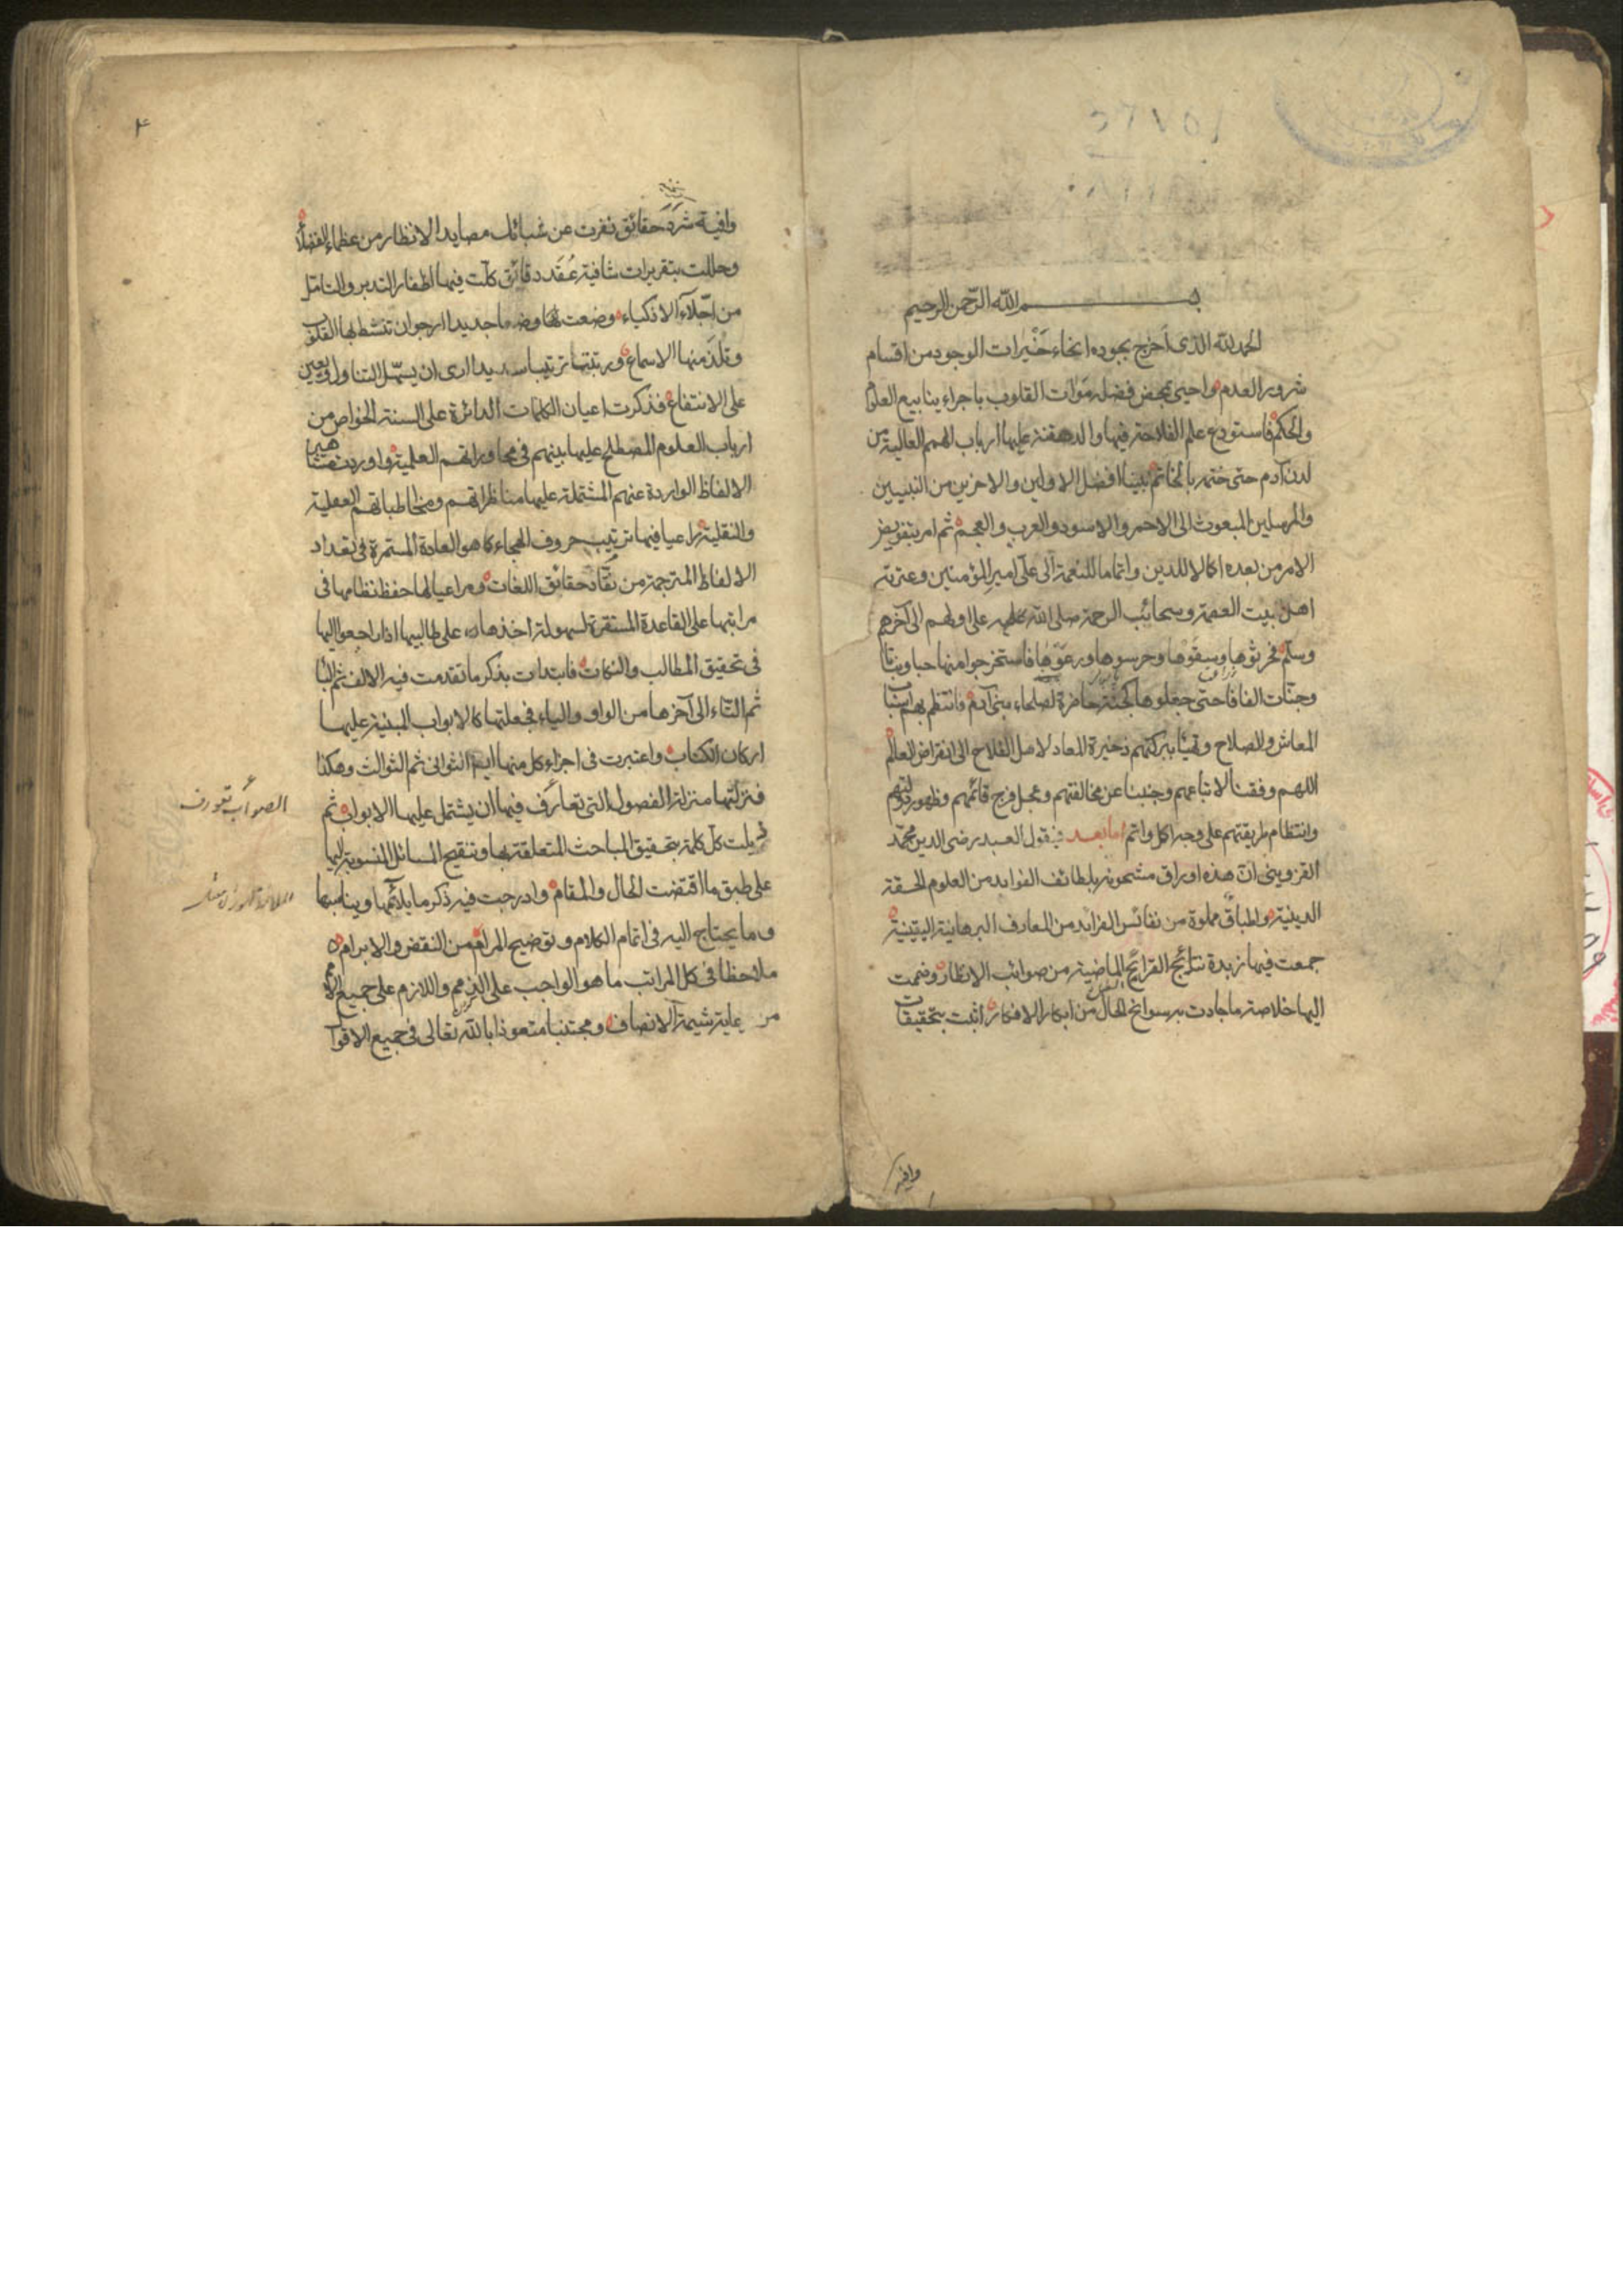 بسم الله الرحمن الرحيم
الحمد لله الذى اخرج بجوده انحاء خيرات الوجود من اقسام
شرور العدم واحيى بمحض فضله موات القلوب باجراء ينابيع العلم
والحكم فاستودع علم الفلاحة فيها والدهقنة عليها ارباب الهمم العالية من
لدن آدم حتى ختمه بالخاتم نبينا افضل الاولين والاخرين من النبيين
والمرسلين المبعوث الى الاحمر والاسود والعرب والعجم ثم امر بتفويض
الامر من بعده اكمالا للدين واتماما للنعمة الى على امير المؤمنين وعترته
اهل بيت العصمة وسحائب الرحمة صلى الله عليهم على اولهم الى آخرهم
وسلم فحرثوها وسقوها وحرسوها ورعوها فاستخرجوا منها حبا ونباتا
وجنات الفافا حتى جعلوها كجنة حاضرة لصلحاء بنى آدم فانتظم بهم اسباب
المعاش والصلاح وتهيا ببركتهم ذخيرة المعاد لاهل الفلاح الى انقراض العالم
اللهم وفقنا لاتباعهم وجنبنا عن مخالفتهم وعجل فرج قائمهم وظهور دولتهم
وانتظام طريقتهم على وجه اكمل واتم اما بعد فيقول العبد رضى الدين محمد
القزوينى ان هذه اوراق مشحونة بلطائف الفوايد من العلوم الحقة
الدينية واطباق مملوة من نفائس الفرايد من المعارف البرهانية اليقينية
جمعت فيها زبدة نتائج القرايح الماضية من صوائب الانظار وضممت
اليها خلاصة ما جادت به سوانح الحال من ابكار الافكار اثبت بتحقيقات
وافية
٤
وافية شرد حقائق نفرت عن شبائك مصايد الانظار من عظماء الفضلاء
وحللت بتقريرات شافية عقد دقائق كلت فيها اظفار التدبر والتامل
من اجلاء الاذكياء وضعت لها وضعا جديدا ارجو ان تنشط بها القلوب
وتلذ منها الاسماع ورتبتها ترتيبا سديدا ارى ان يسهل التناول ويعين
على الانتفاع فذكرت اعيان الكلمات الدائرة على السنة الخواص من
ارباب العلوم المصطلح عليها بينهم فى محاوراتهم العلمية واوردت مشاهير
الالفاظ الواردة عنهم المشتملة عليها مناظراتهم ومخاطباتهم العقلية
والنقلية مراعيا فيها ترتيب حروف الهجاء كما هو العادة المستمرة فى تعداد
الالفاظ المترجمة من نقاد حقائق اللغات ومراعيا لها حفظ نظامها فى
مراتبها على القاعدة المستقرة لسهولة اخذها على طالبيها اذا راجعوا اليها
فى تحقيق المطالب والنكات فابتدات بذكر ما تقدمت فيه الالف ثم الباء
ثم التاء الى آخرها من الواو والياء فجعلتها كالابواب المبنية عليها
اركان الكتاب واعتبرت فى اجزاء كل منها الثوانى ثم الثوالث وهكذا
فنزلتها منزلة الفصول التى تعارف فيها ان يشتمل عليها الابواب ثم
ذيلت كل كلمة بتحقيق المباحث المتعلقة بها وتنقيح المسائل المنسوبة اليها
على طبق ما اقتضت الحال والمقام وادرجت فيه ذكر ما يلائمها ويناسبها
وما يحتاج اليه فى اتمام الكلام وتوضيح المرام من النقض والابرام
ملاحظا فى كل المراتب ما هو الواجب على الذمم واللازم على جميع الامم
من رعاية شيمة الانصاف ومجتنبا متعوذا بالله تعالى فى جميع الاقوال
الصواب تعورف